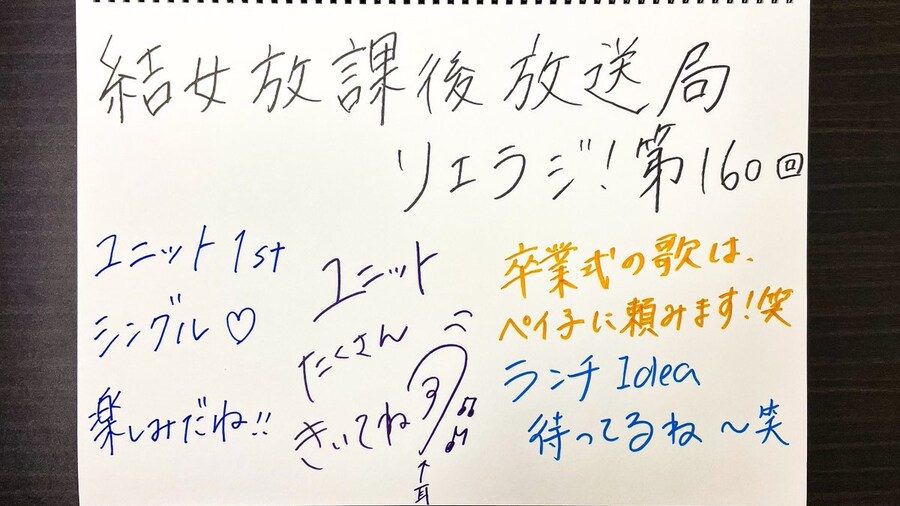 結女放課後放送局
リエラジ!第160回
ユニット1st
シングル♡
楽しみだね!!
ユニット
たくさん
きいてね
↑
耳
卒業式の歌は、
ペイ子に頼みます!笑
ランチIdea
待ってるね〜笑